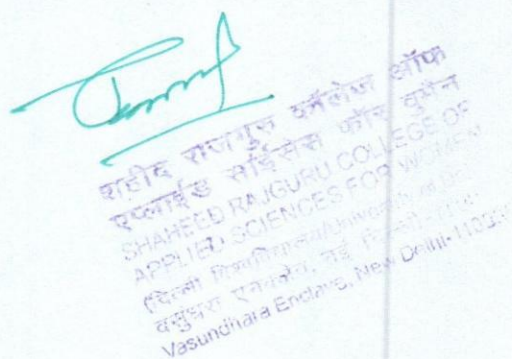 शहीद राजगुरु कॉलेज ऑफ
एप्लाईड साईंसेस फॉर वूमैन
SHAHEED RAJGURU COLLEGE OF
APPLIED SCIENCES FOR WOMEN
(दिल्ली विश्वविद्यालय/University of
वसुंधरा एनक्लेव, नई दिल्ली
Vasundhara Enclave, New Delhi-